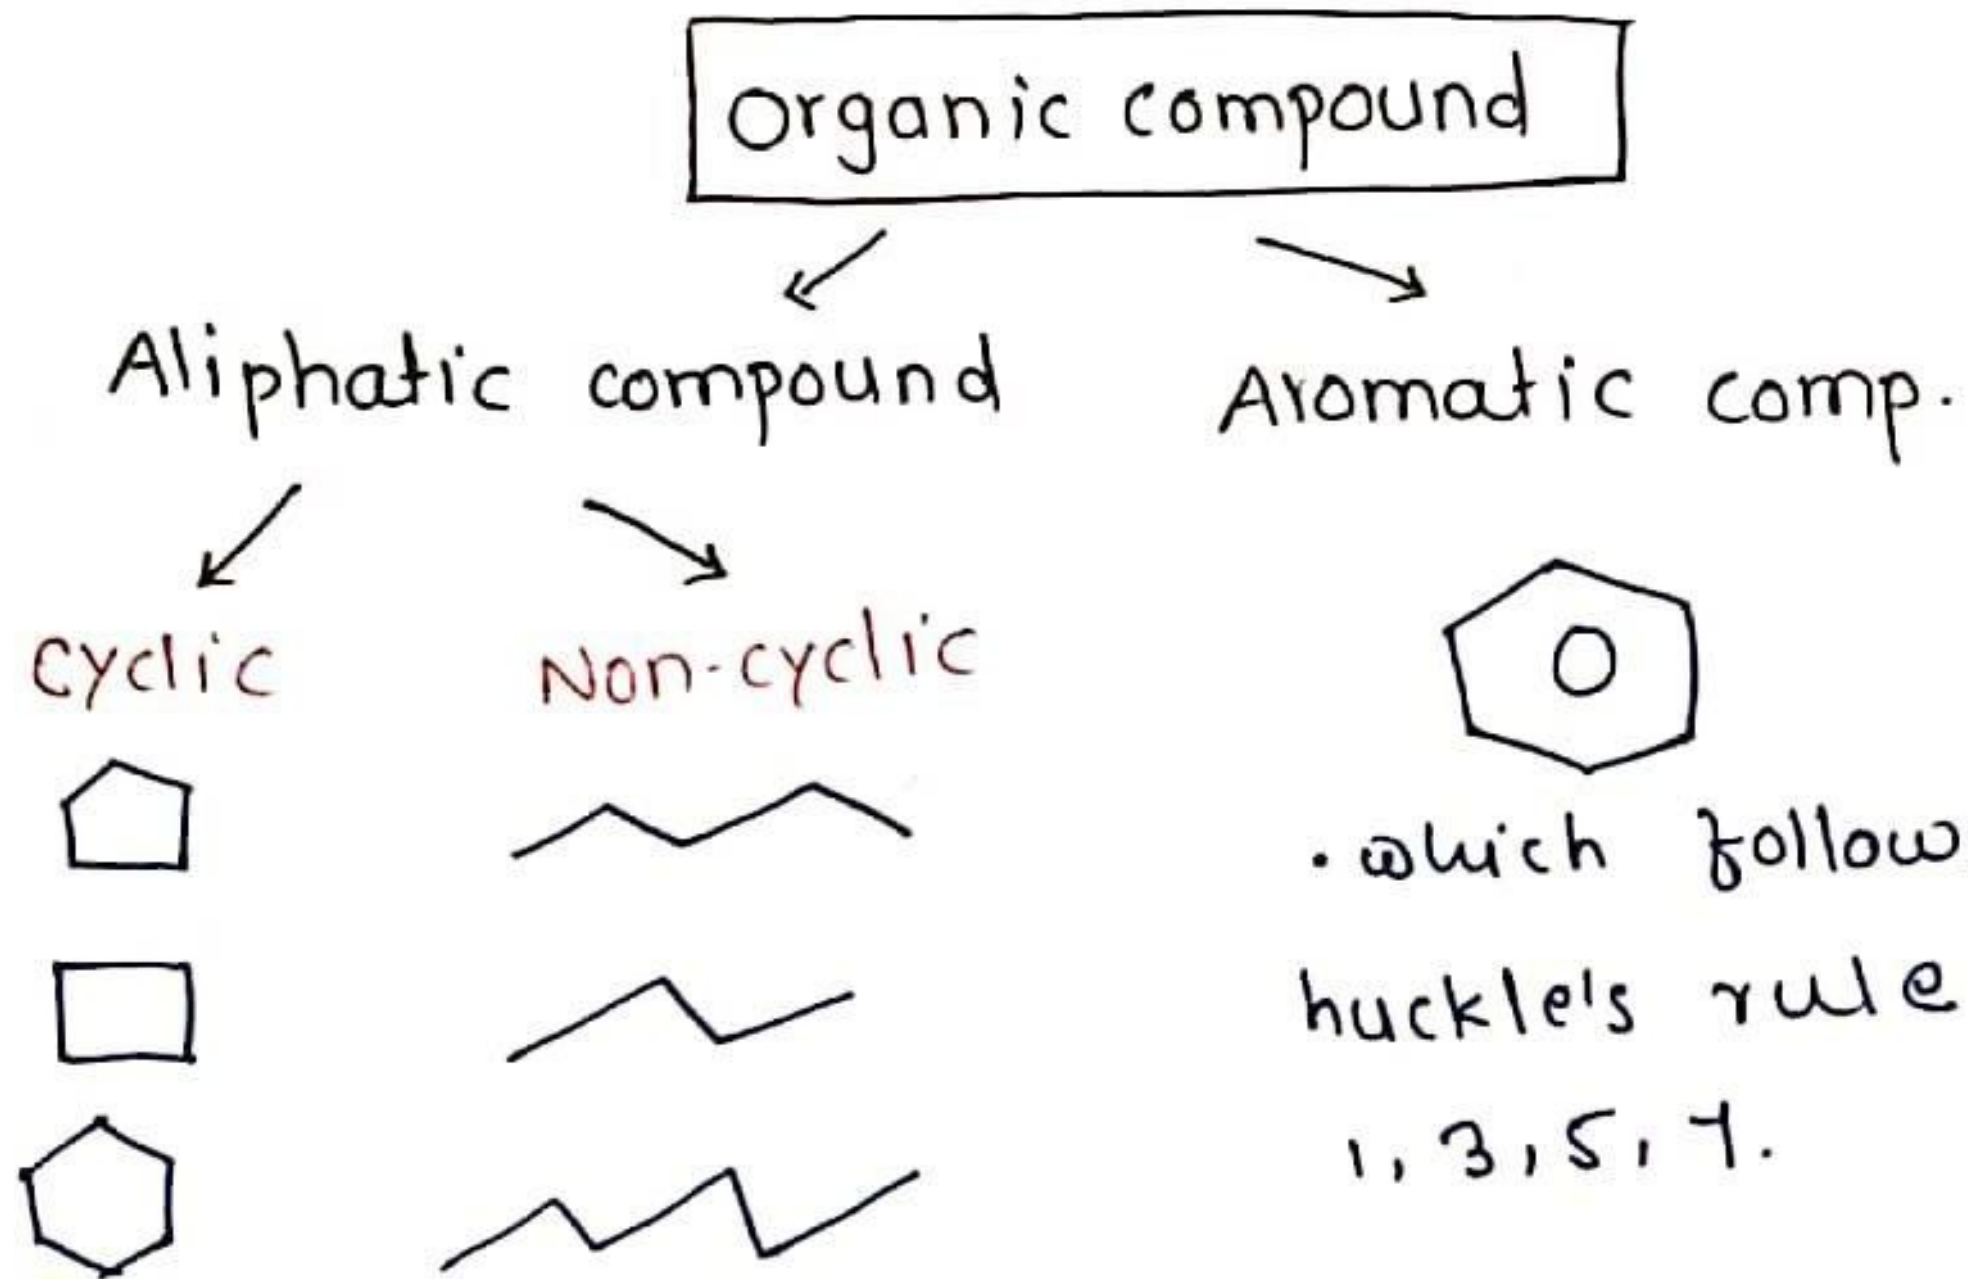 Organic compound
Aliphatic compound
Aromatic comp.
Cyclic
Non-cyclic
• which follow
huckle's rule
1, 3, 5, 7.